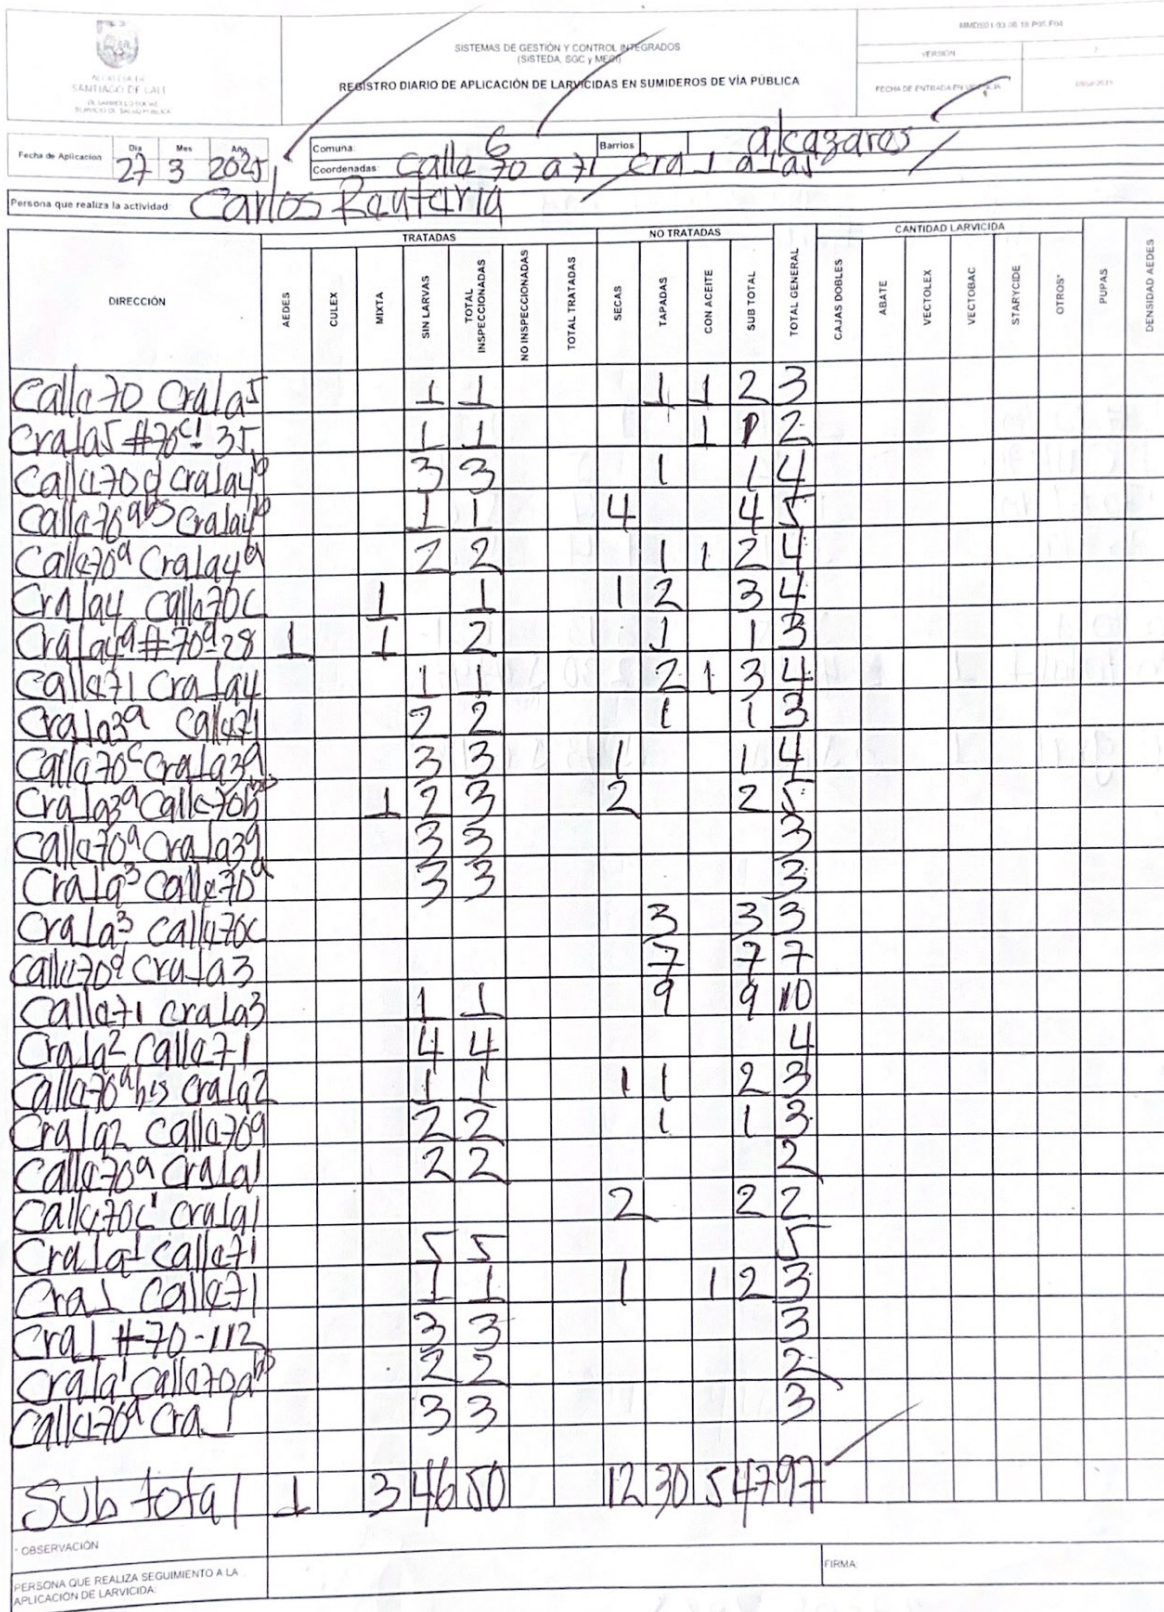 ALCALDÍA DE
SANTIAGO DE CALI
SISTEMAS DE GESTIÓN Y CONTROL INTEGRADOS
(SISTEDA, SGC y MECI)
REGISTRO DIARIO DE APLICACIÓN DE LARVICIDAS EN SUMIDEROS DE VÍA PÚBLICA
VERSIÓN
FECHA DE ENTRADA EN VIGENCIA
Fecha de Aplicación Día Mes Año 27 3 2025
Comuna: 6 Barrios alcazares
Coordenadas: Calle 70 a 71 cra 1 a 1a5
Persona que realiza la actividad: Carlos Renteria
DIRECCIÓN TRATADAS NO TRATADAS CANTIDAD LARVICIDA
AEDES CULEX MIXTA SIN LARVAS TOTAL INSPECCIONADAS NO INSPECCIONADAS TOTAL TRATADAS SECAS TAPADAS CON ACEITE SUB TOTAL TOTAL GENERAL CAJAS DOBLES ABATE VECTOLEX VECTOBAC STARYCIDE OTROS* PUPAS DENSIDAD AEDES
Calle 70 Cra1a5 1 1 1 1 2 3
Cra1a5 #70c1 35 1 1 1 1 2
Calle70d Cra1a4b 3 3 1 1 4
Calle70abs Cra1a4b 1 1 4 4 5
Calle70a Cra1a4a 2 2 1 1 2 4
Cra1a4 Calle70c 1 1 1 2 3 4
Cra1a4a #70a-28 1 1 2 1 1 3
Calle71 Cra1a4 1 1 2 1 3 4
Cra1a3a Calle71 2 2 1 1 3
Calle70c Cra1a3a 3 3 1 1 4
Cra1a3a Calle70bs 1 2 3 2 2 5
Calle70a Cra1a3a 3 3 3
Cra1a3 Calle70a 3 3 3
Cra1a3 Calle70c 3 3 3
Calle70d Cra1a3 7 7 7
Calle71 cra1a3 1 1 9 9 10
Cra1a2 Calle71 4 4 4
Calle70a bis cra1a2 1 1 1 1 2 3
Cra1a2 Calle70a 2 2 1 1 3
Calle70a Cra1a1 2 2 2
Calle70c1 cra1a1 2 2 2
Cra1a1 calle71 5 5 5
Cra1 Calle71 1 1 1 1 2 3
Cra1 #70-112 3 3 3
Cra1a1 Calle70abs 2 2 2
Calle70a Cra 1 3 3 3
Sub total 1 3 46 50 12 30 5 47 97
* OBSERVACIÓN
PERSONA QUE REALIZA SEGUIMIENTO A LA
APLICACIÓN DE LARVICIDA: FIRMA: